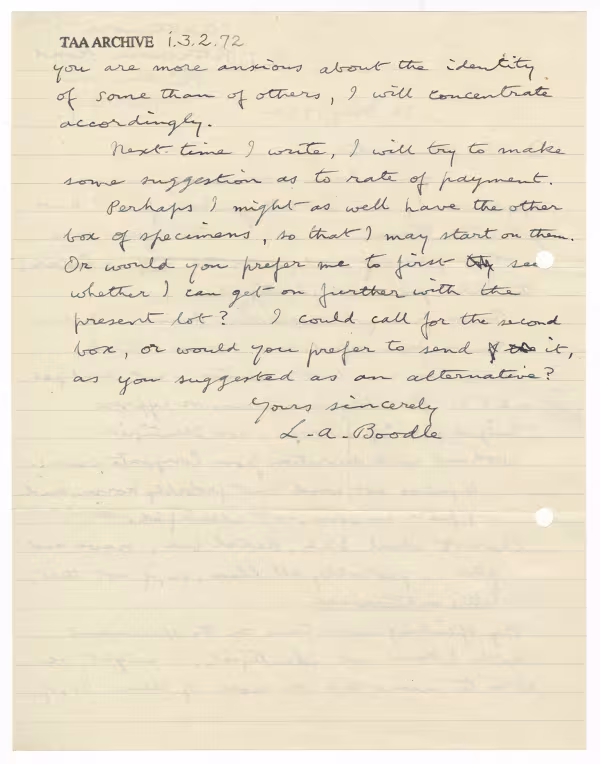 TAA ARCHIVE i.3.2.72
you are more anxious about the identity
of some than of others, I will concentrate
accordingly.
Next time I write, I will try to make
some suggestion as to rate of payment.
Perhaps I might as well have the other
box of specimens, so that I may start on them.
Or would you prefer me to first see
whether I can get on further with the
present lot? I could call for the second
box, or would you prefer to send it,
as you suggested as an alternative?
Yours sincerely
L. A. Boodle